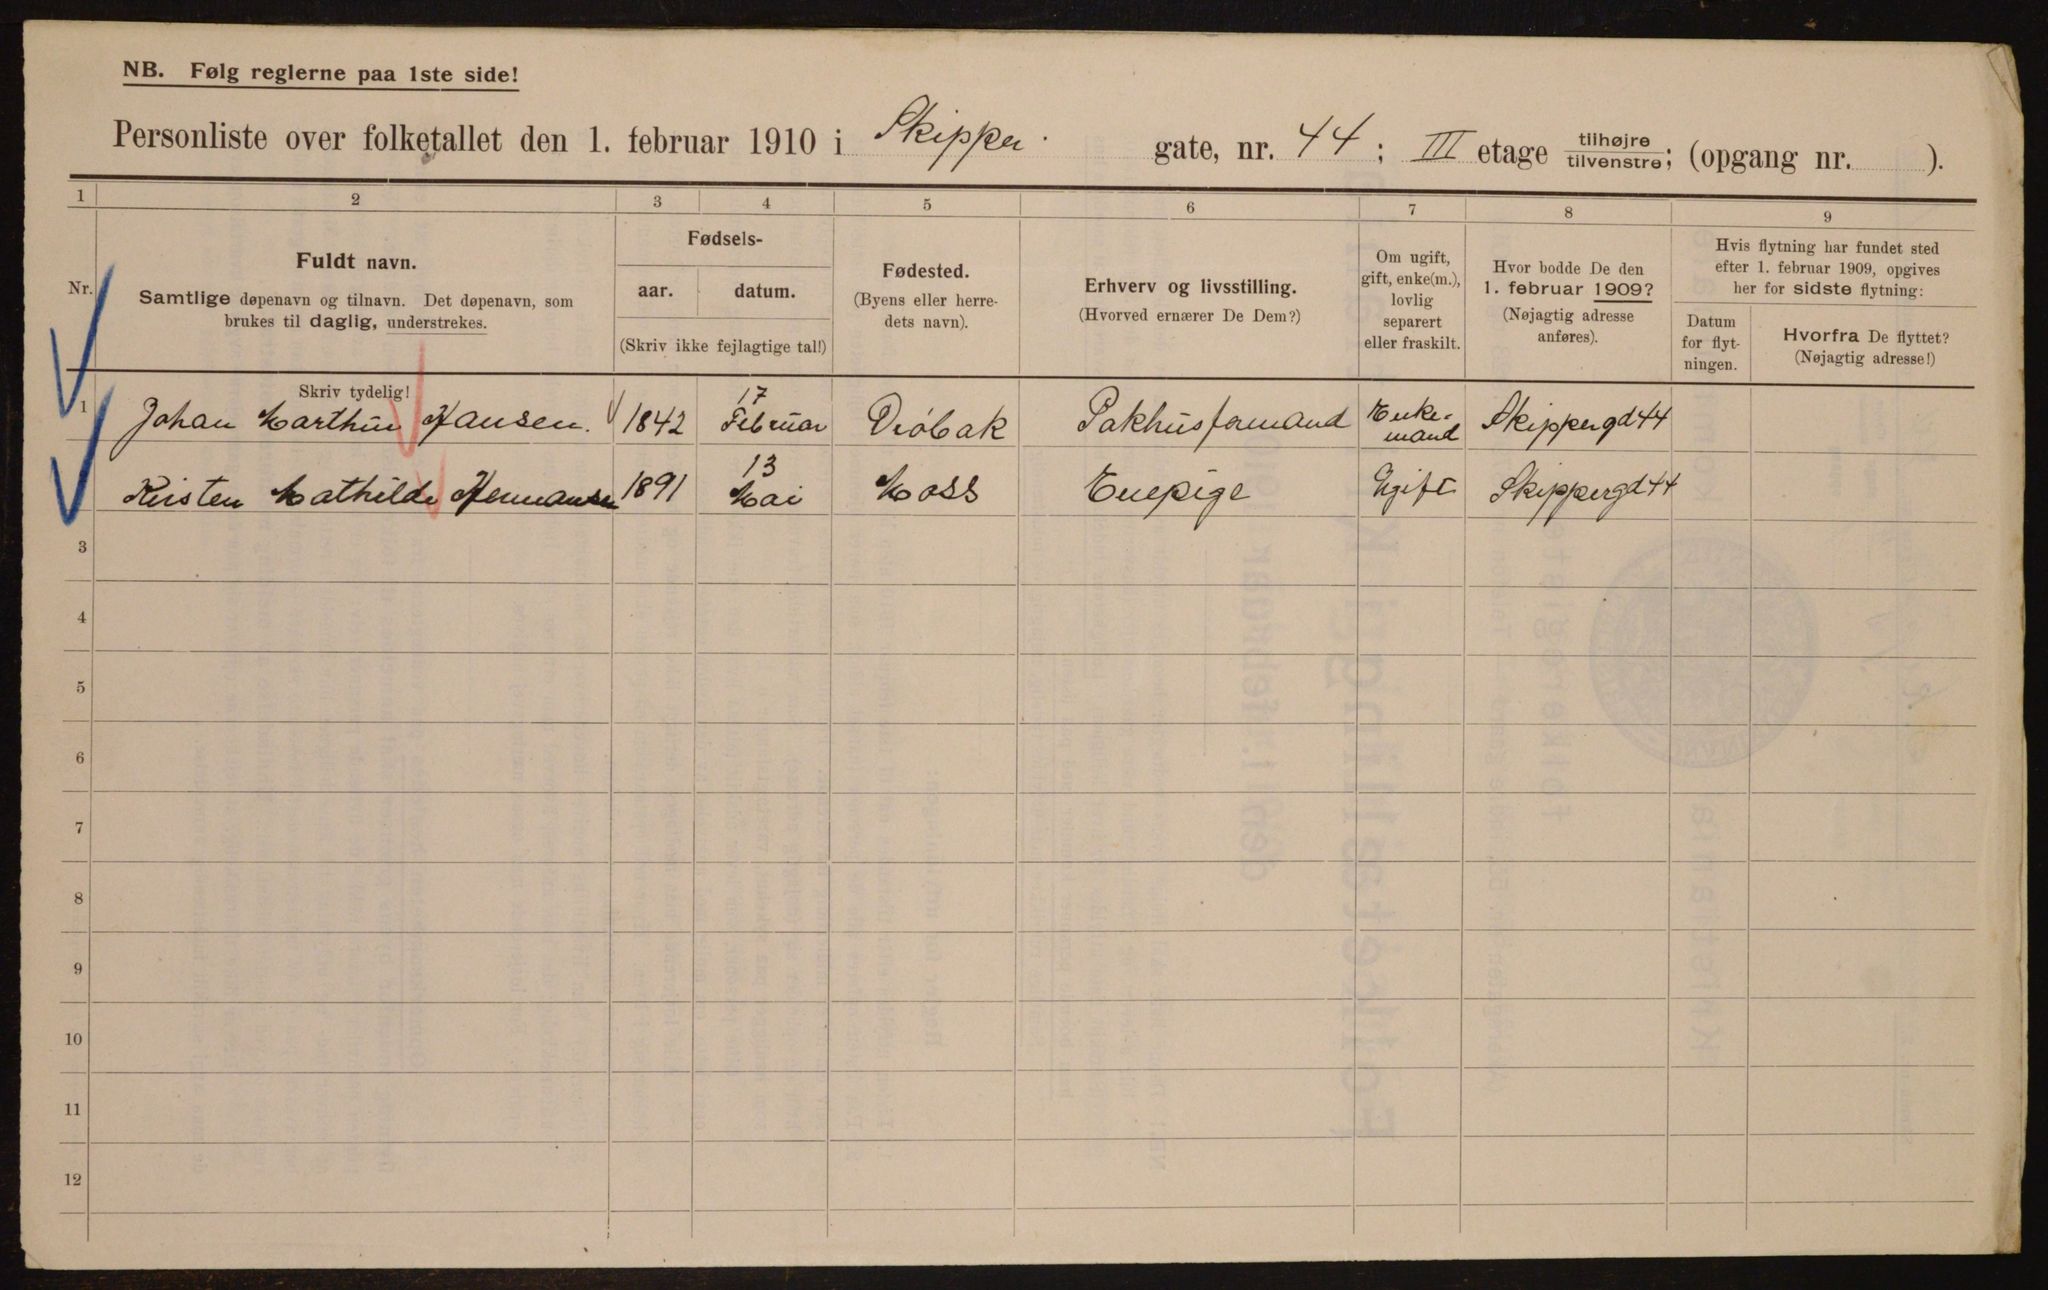 NB. Følg reglerne paa 1ste side!
Personliste over folketallet den 1. februar 1910 i Skipper gate, nr. 44; III etage tilhøjre/tilvenstre; (opgang nr. ).
1 2 3 4 5 6 7 8 9
Nr.
Fuldt navn.
Samtlige døpenavn og tilnavn. Det døpenavn, som
brukes til daglig, understrekes.
Fødsels-
aar. datum.
(Skriv ikke fejlagtige tal!)
Fødested.
(Byens eller herre-
dets navn).
Erhverv og livsstilling.
(Hvorved ernærer De Dem?)
Om ugift,
gift, enke(m.),
lovlig
separert
eller fraskilt.
Hvor bodde De den
1. februar 1909?
(Nøjagtig adresse
anføres).
Hvis flytning har fundet sted
efter 1. februar 1909, opgives
her for sidste flytning:
Datum
for flyt-
ningen.
Hvorfra De flyttet?
(Nøjagtig adresse!)
Skriv tydelig!
1 Johan Marthin Hansen. 1842 17 Februar Drøbak Pakhusformand Enke-
mand Skippergd 44
Kristen Mathilde Hermansen 1891 13 Mai Moss Enepige Ugift Skippergd 44
3
4
5
6
7
8
9
10
11
12